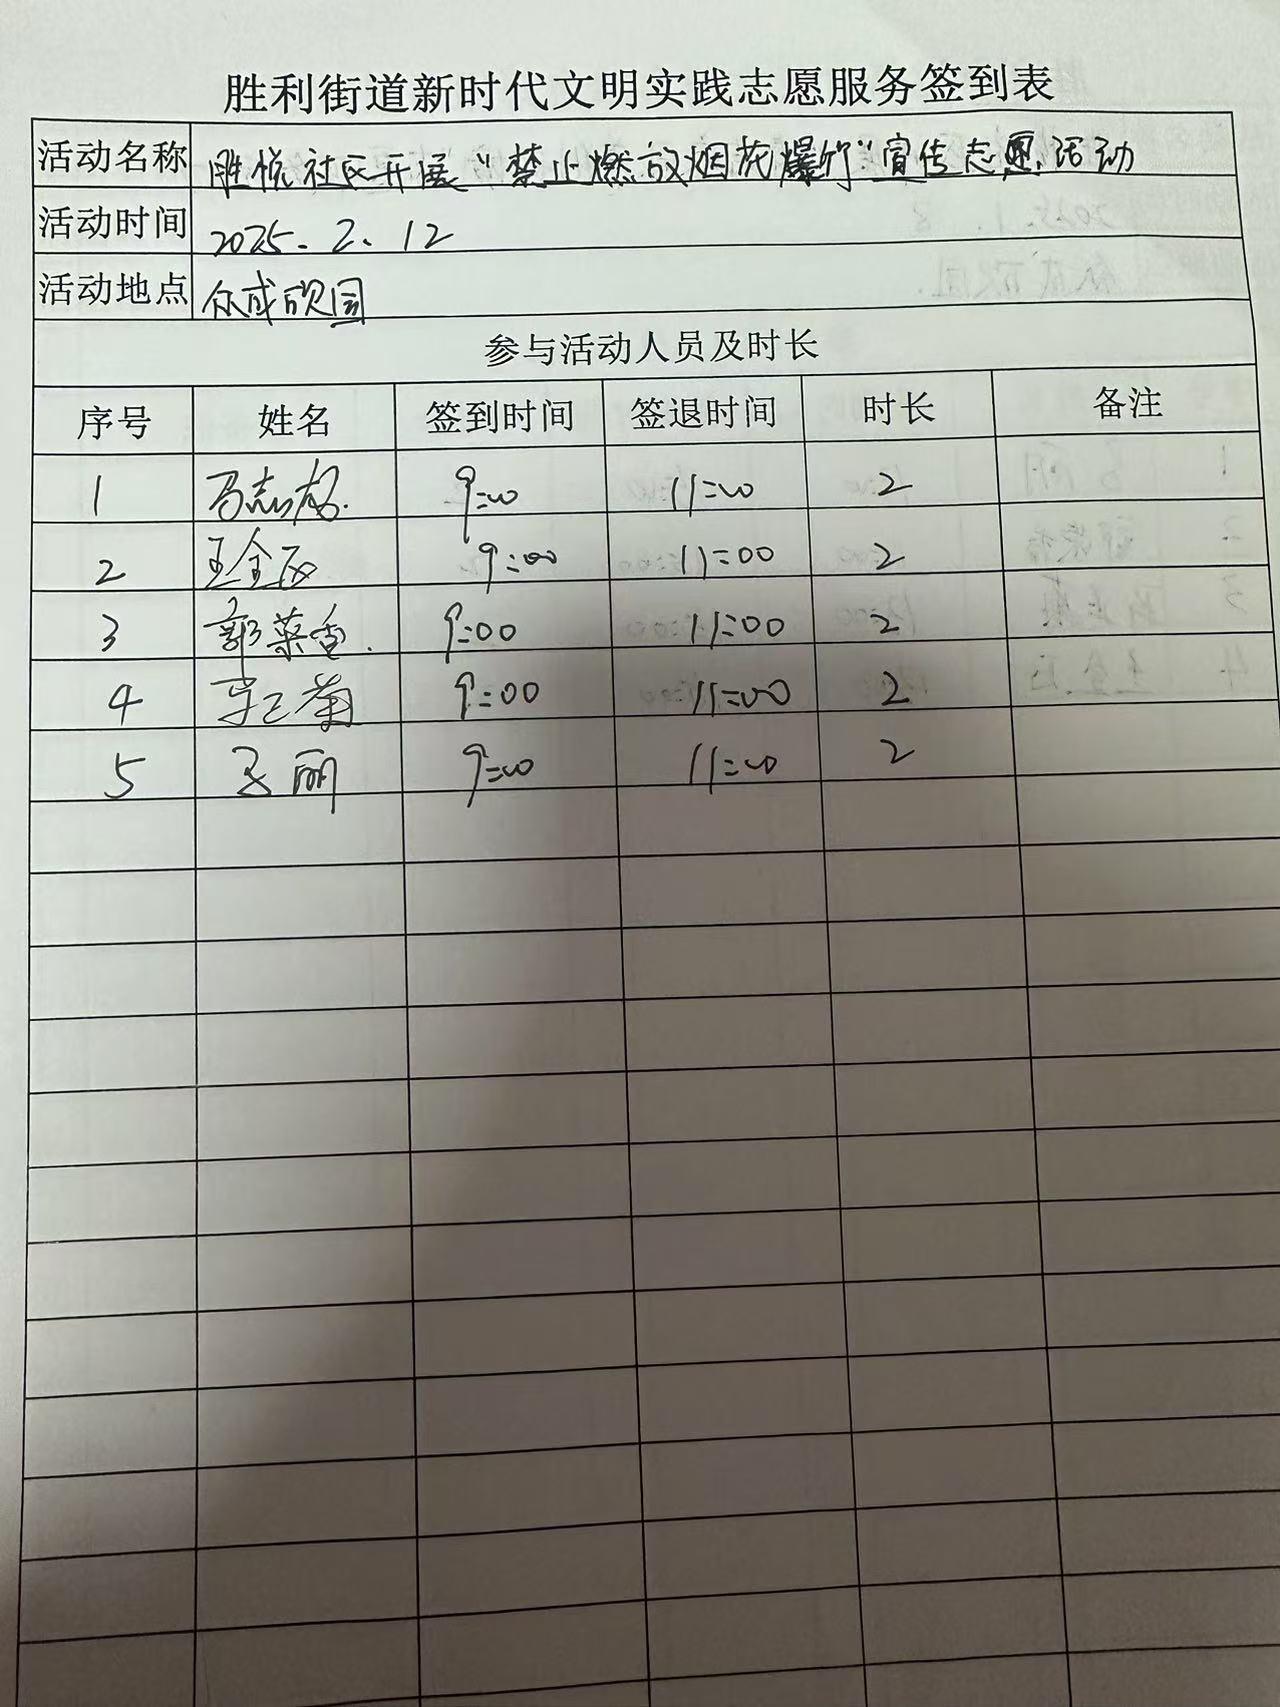 胜利街道新时代文明实践志愿服务签到表
活动名称 胜悦社区开展“禁止燃放烟花爆竹”宣传志愿活动
活动时间 2025.2.12
活动地点 众成欣园
参与活动人员及时长
序号 姓名 签到时间 签退时间 时长 备注
1 马志 9:00 11:00 2
2 王金 9:00 11:00 2
3 郭荣香 9:00 11:00 2
4 菊 9:00 11:00 2
5 丽 9:00 11:00 2